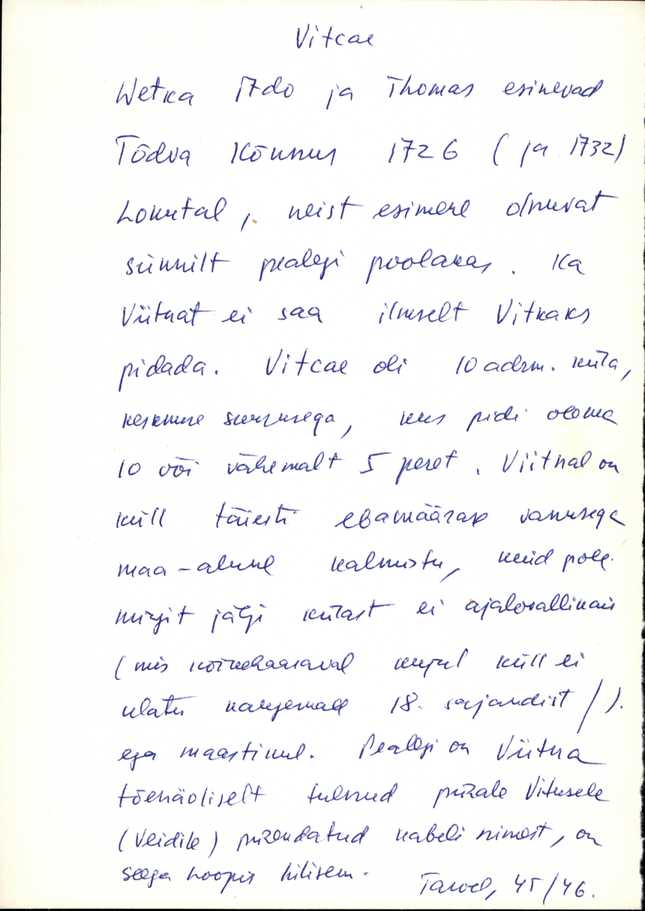 Vitcae
Wetka Ado ja Thomas esinevad
Tõdva Kõnnus 1726 (ja 1732)
Lokutal, neist esimene olnuvat
sünnilt pealegi poolakas. Ka
Viitnat ei saa ilmselt Vitkaks
pidada. Vitcae oli 10 adrm. küla,
keskmise suurusega, kus pidi olema
10 või vähemalt 5 peret. Viitnal on
küll täiesti ebamäärase vanusega
maa-alune kalmistu, kuid pole
mingit jälge külast ei ajalooallikais
(mis kõnekaaraval kujul küll ei
ulatu kaugemale 18. sajandist/).
ega maastikul. Pealegi on Viitna
tõenäoliselt tulnud pühale Vitusele
(Veidile) pühendatud kabeli nimest, on
seega hoopis hilisem.
Tarvel, 45/46.